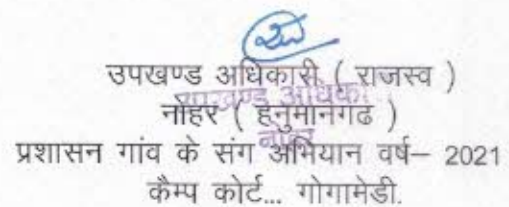 उपखण्ड अधिकारी ( राजस्व )
नोहर ( हनुमानगढ )
प्रशासन गांव के संग अभियान वर्ष– 2021
कैम्प कोर्ट... गोगामेडी.